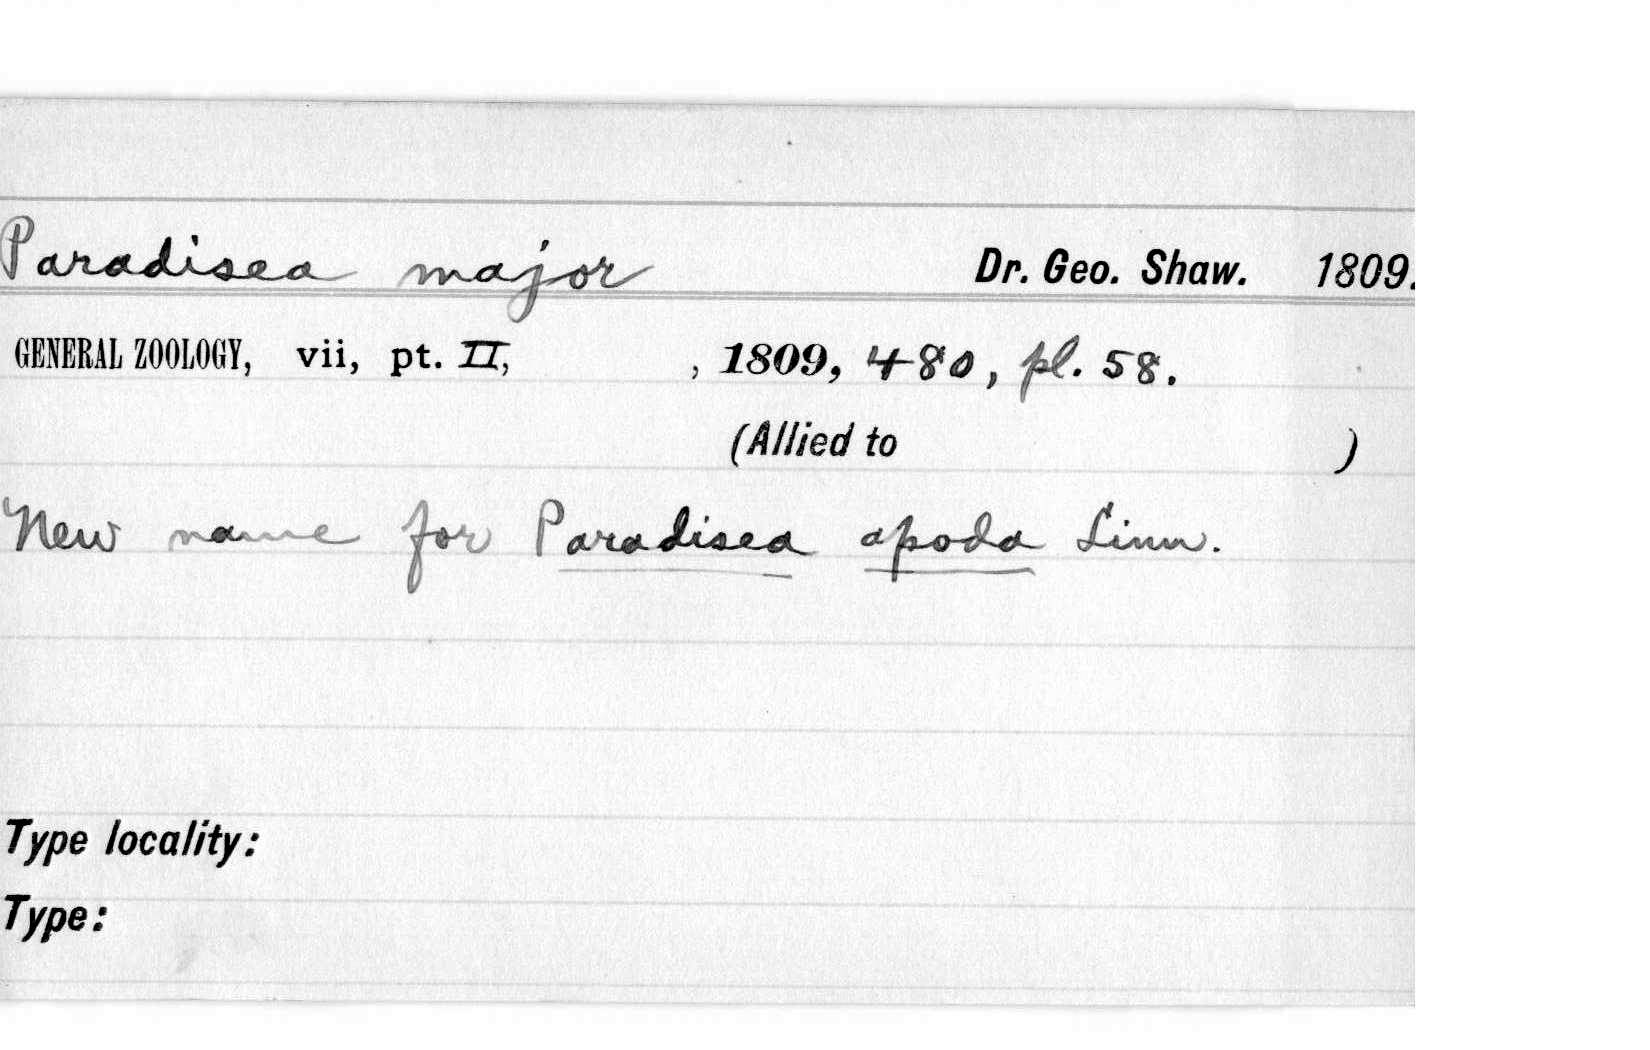 Paradisea major Dr. Geo. Shaw. 1809.
GENERAL ZOOLOGY, vii, pt. II, , 1809, 480, pl. 58.
(Allied to )
New name for Paradisea apoda Linn.
Type locality:
Type: